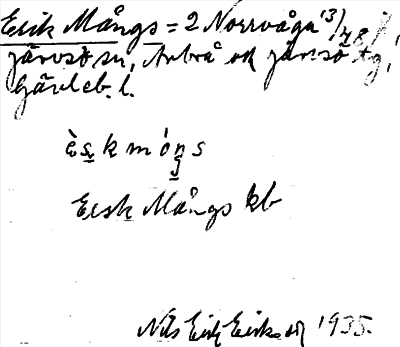 Erik Mångs = 2 Norrvåga 13/48
järvsö sn, Arbrå ok järvsö tg,
Gävleb. l.
è s k m ó n s
Eesk Mångs kb
Nils Erik Eriksson 1935.